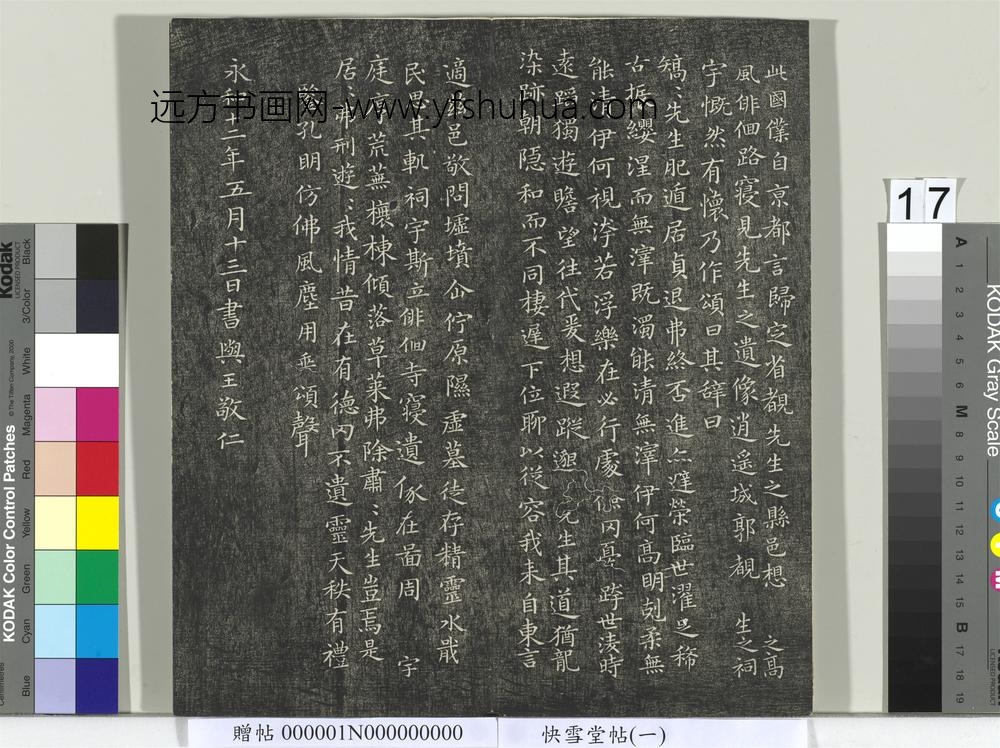 此國僕自京都言歸定省覩先生之縣邑想 之高
風俳佪路寢見先生之遺像逍遥城郭覩 生之祠
宇慨然有懷乃作頌曰其辭曰
矯〻先生肥遁居貞退弗終否進亦避榮臨世濯足稀
古振纓涅而無滓既濁能清無滓伊何高明剋柔無
能清伊何視洿若浮樂在必行處儉罔憂跨世淩時
遠蹈獨遊瞻望往代爰想遐蹤邈〻先生其道猶龍
染跡朝隱和而不同棲遲下位聊以從容我来自東言
適茲邑敬問墟墳企佇原隰虛墓徒存精靈永戢
民思其軌祠宇斯立俳佪寺寢遺像在啚周 宇
庭序荒蕪榱棟傾落草萊弗除肅〻先生豈焉是
居〻弗刑遊〻我情昔在有德罔不遺靈天秩有禮
孔明仿佛風塵用垂頌聲
永和十二年五月十三日書與王敬仁
远方书画网-www.yfshuhua.com
贈帖 000001N000000000
快雪堂帖(一)
17
Kodak
LICENSED PRODUCT
KODAK Color Control Patches
© The Tiffen Company, 2000
Black
3/Color
White
Magenta
Red
Yellow
Green
Cyan
Blue
Centimetres
KODAK Gray Scale
A 1 2 3 4 5 6 M 8 9 10 11 12 13 14 15 B 17 18 19